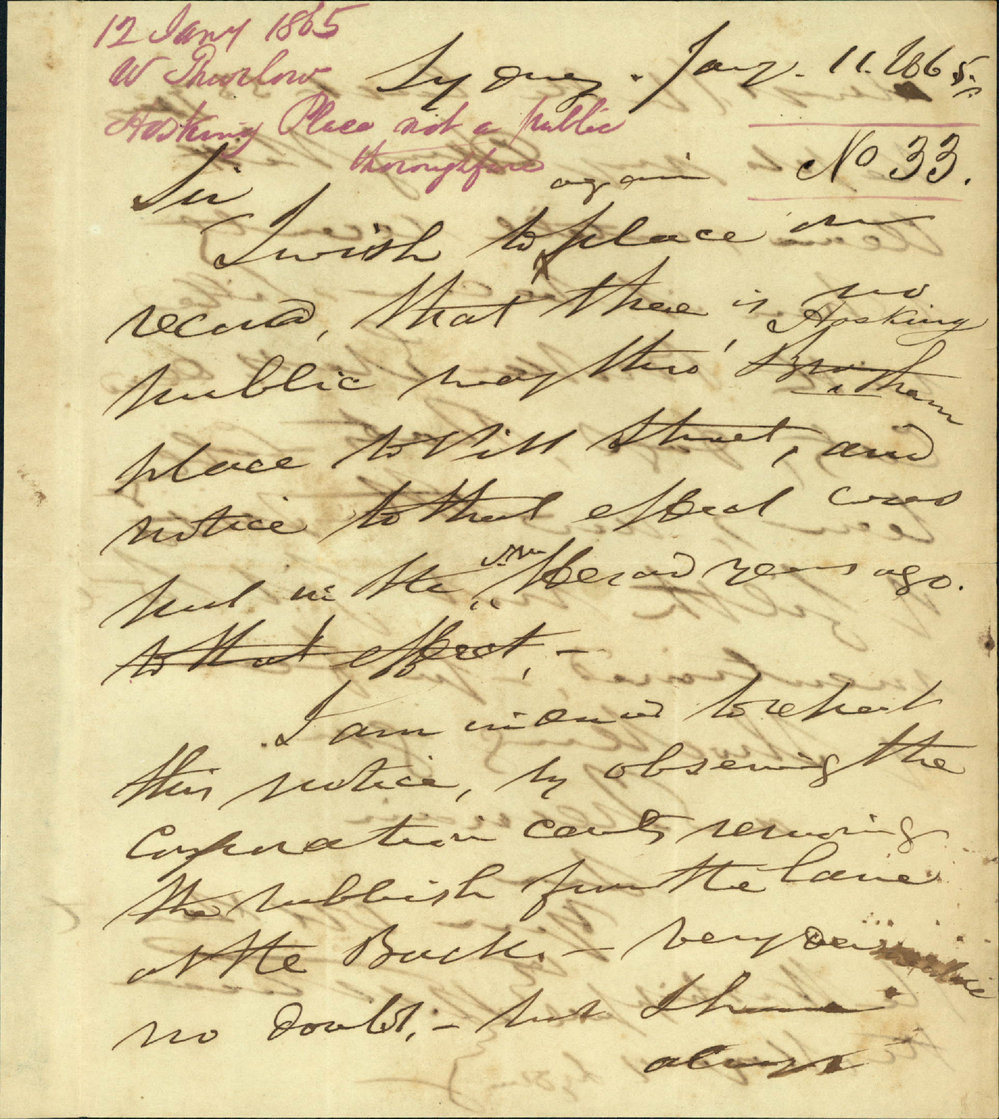 12 Jany 1865
W Thurlow
Hosking Place not a public
thoroughfare
Sydney. Jany. 11. 1865.
No 33.
Sir
I wish to again place on
record, that there is no
public way thro' Hosking
place to Pitt Street, and
notice to that effect was
put in the Herald years ago.
to that effect, –
I am induced to repeat
this notice, by observing the
Corporation carts removing
the rubbish from the lane
at the Back. – very desirable
no doubt, – but
always